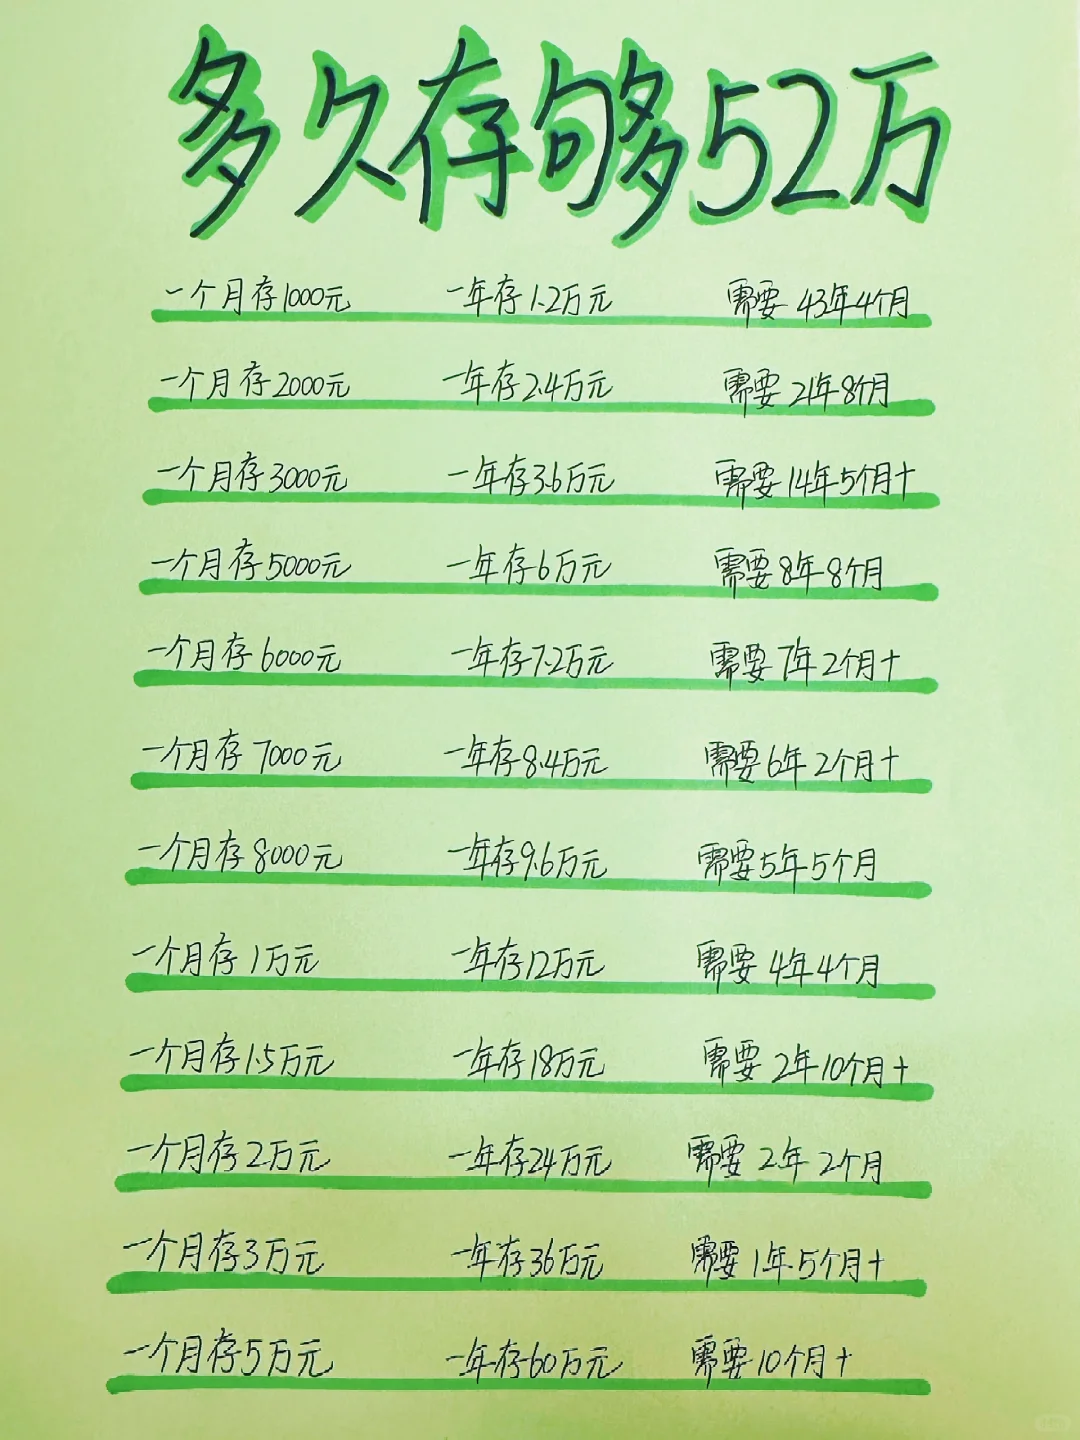 多久存够52万
一个月存1000元 一年存1.2万元 需要43年4个月
一个月存2000元 一年存2.4万元 需要21年8个月
一个月存3000元 一年存3.6万元 需要14年5个月+
一个月存5000元 一年存6万元 需要8年8个月
一个月存6000元 一年存7.2万元 需要7年2个月+
一个月存7000元 一年存8.4万元 需要6年2个月+
一个月存8000元 一年存9.6万元 需要5年5个月
一个月存1万元 一年存12万元 需要4年4个月
一个月存1.5万元 一年存18万元 需要2年10个月+
一个月存2万元 一年存24万元 需要2年2个月
一个月存3万元 一年存36万元 需要1年5个月+
一个月存5万元 一年存60万元 需要10个月+